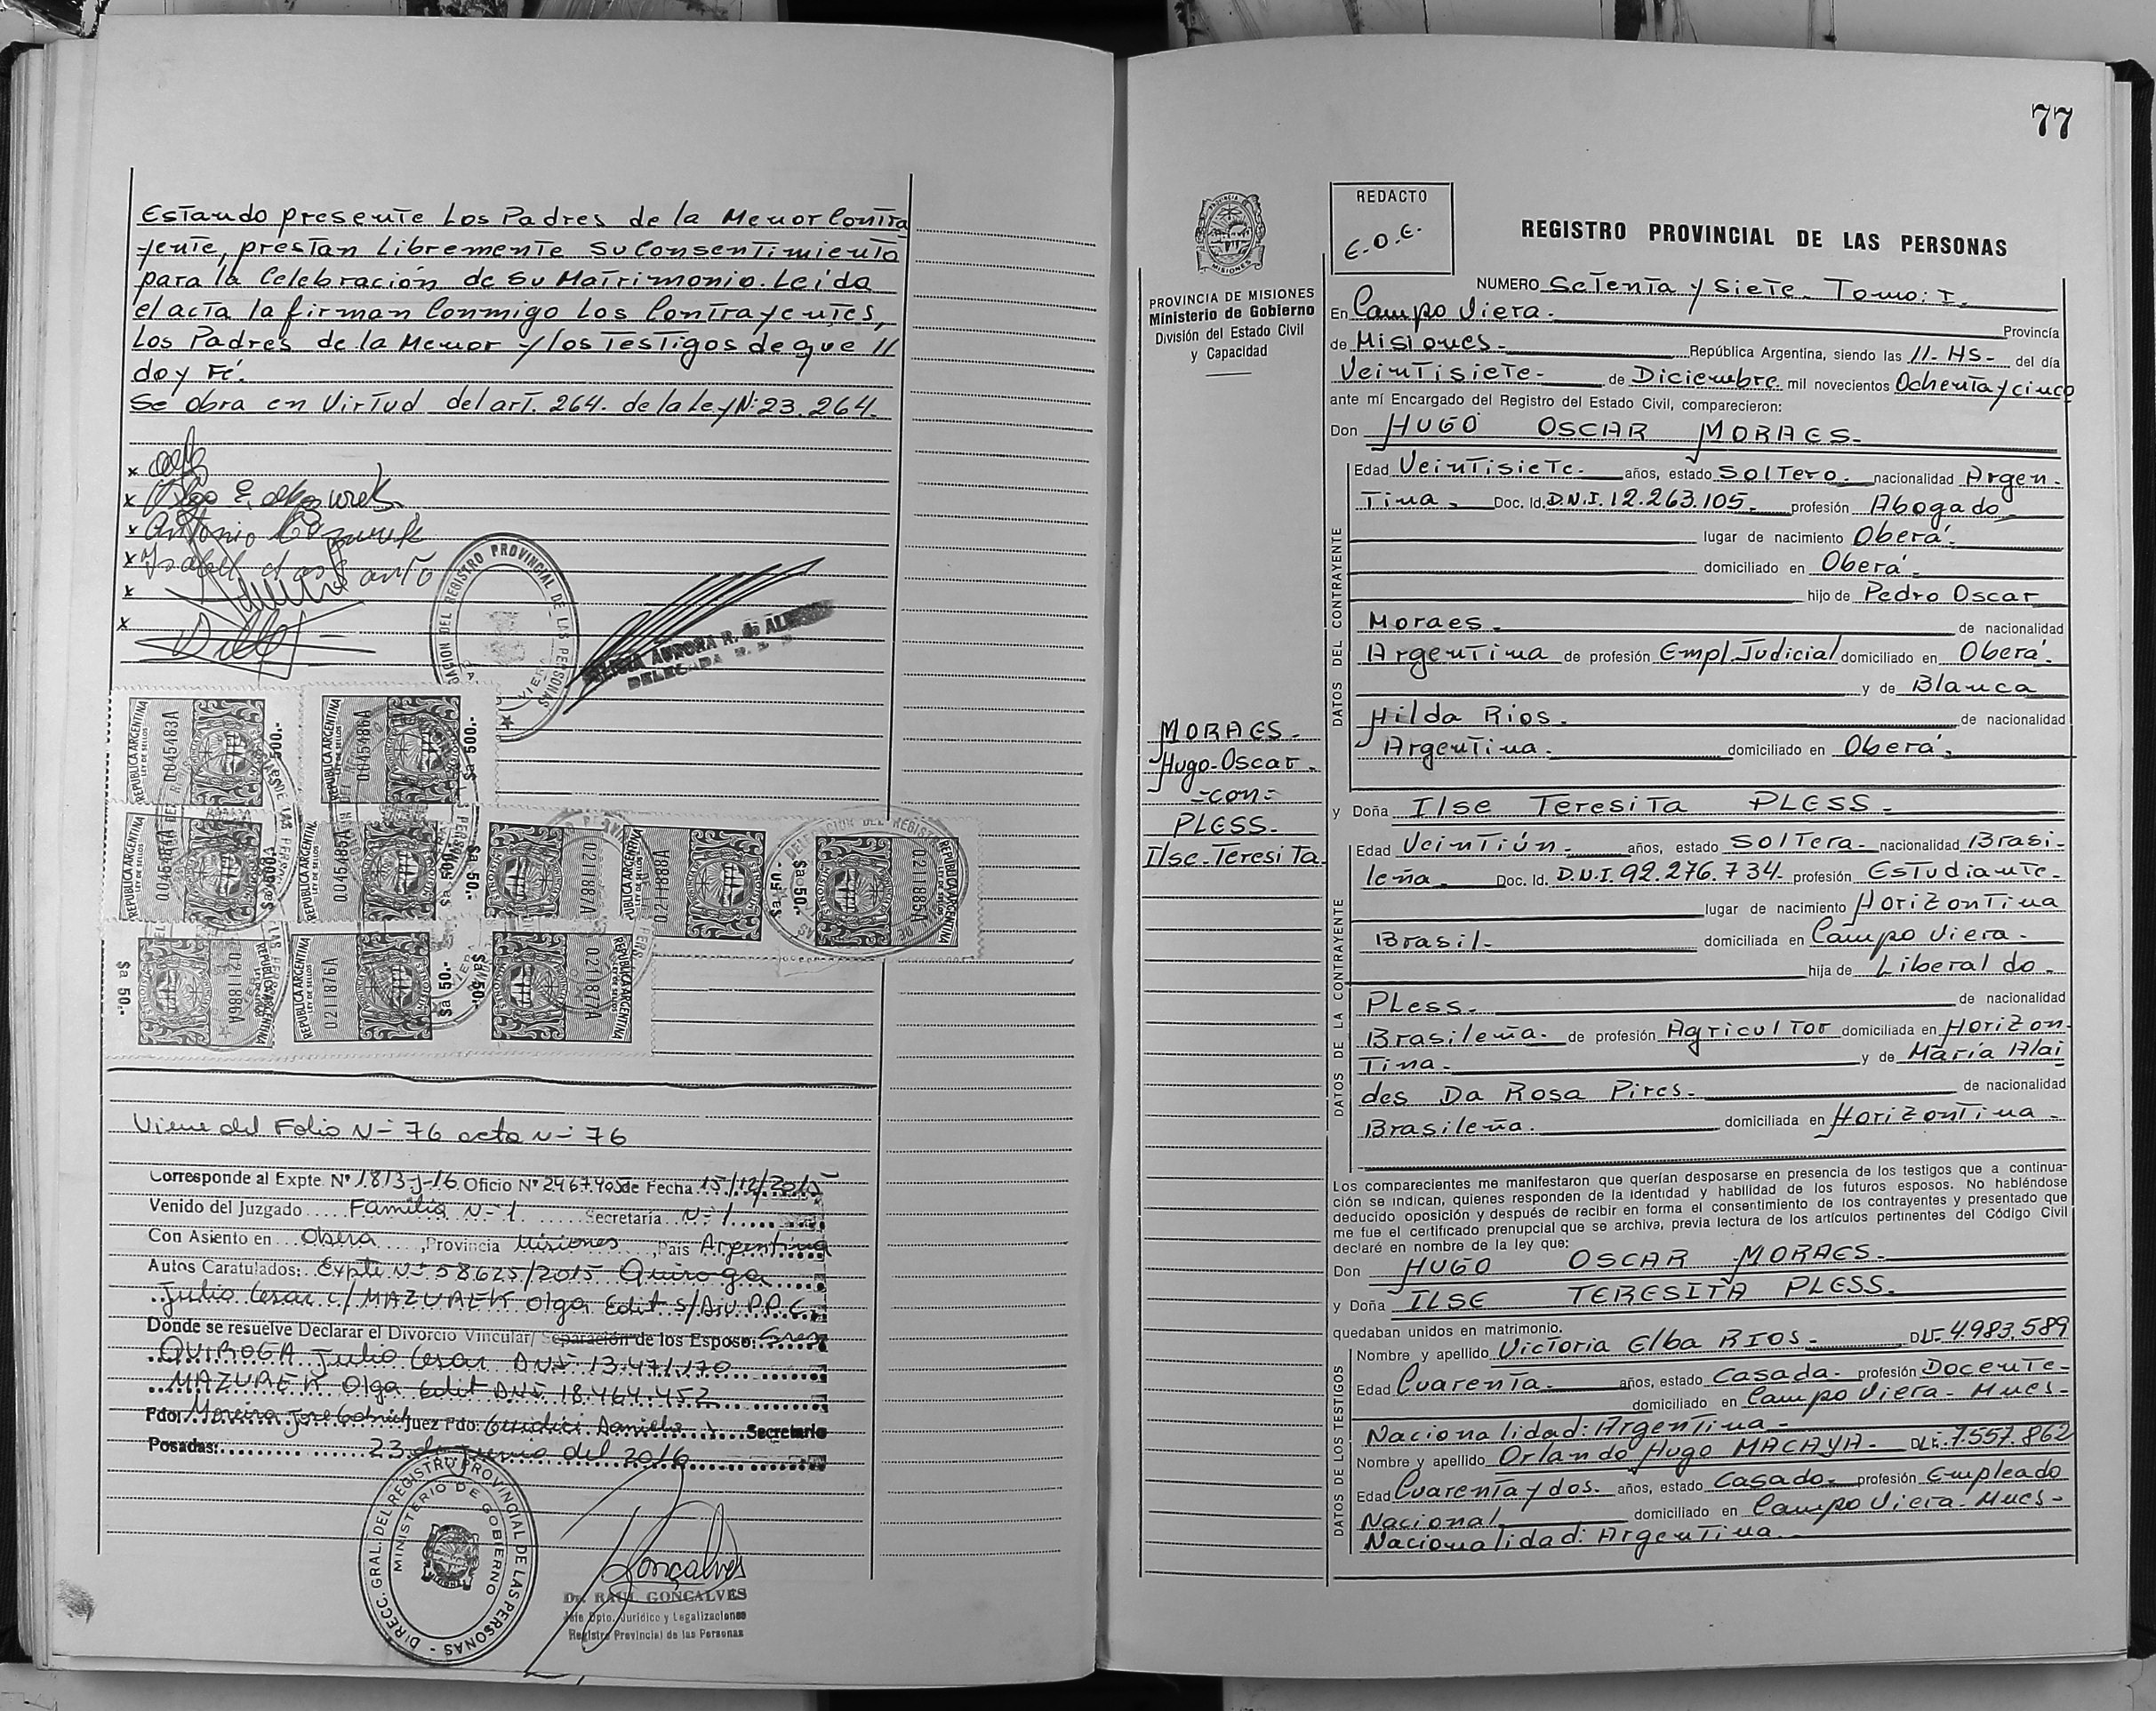 Estando presente Los Padres de la Menor Contra
yente, prestan Libremente su Consentimiento
para la Celebración de su Matrimonio. Leida
el acta la firman Conmigo Los Contrayentes,
Los Padres de la Menor y los Testigos de que //
doy Fé.
Se obra en Virtud del art. 264. de la Ley Nº 23.264.
x
x
x Antonio Mazurek
x Isabel dos santo
x
x
DELEGACION DEL REGISTRO PROVINCIAL DE LAS PERSONAS
AURORA R. de
DELEGADA
REPUBLICA ARGENTINA
LEY DE SELLOS
0045483A
$a 500.-
REPUBLICA ARGENTINA
LEY DE SELLOS
0045486A
$a 500.-
REPUBLICA ARGENTINA
0045484A
$a 500.-
REPUBLICA ARGENTINA
0045485A
$a 500.-
0211887A
$a 50.-
REPUBLICA ARGENTINA
0211888A
$a 50.-
REPUBLICA ARGENTINA
0211885A
$a 50.-
REPUBLICA ARGENTINA
0211886A
$a 50.-
REPUBLICA ARGENTINA
LEY DE SELLOS
0211876A
$a 50.-
REPUBLICA ARGENTINA
LEY DE SELLOS
0211877A
$a 50.-
Viene del Folio Nº 76 acta Nº 76
Corresponde al Expte. Nº 1813-J-16 Oficio Nº de Fecha 15/12/2015
Venido del Juzgado Familia Nº 1 Secretaría Nº 1
Con Asiento en Oberá, Provincia Misiones, País Argentina
Autos Caratulados: Expte Nº 58625/2015 Quiroga
Julio Cesar c/ MAZUREK Olga Edit s/ Div. P.P.C.
Donde se resuelve Declarar el Divorcio Vincular/ Separación de los Esposo: Sres
QUIROGA Julio Cesar DNI 13.471.170
MAZUREK Olga Edit DNI 18.464.452
Fdo: Moreira Jose Gabriel Juez Fdo: Guidici Daniela Secretario
Posadas: 23 de Junio del 2016
DIRECC. GRAL. DEL REGISTRO PROVINCIAL DE LAS PERSONAS
MINISTERIO DE GOBIERNO
Gonçalves
Dr. RAUL GONCALVES
Jefe Dpto. Jurídico y Legalizaciones
Registro Provincial de las Personas
77
PROVINCIA DE MISIONES
Ministerio de Gobierno
División del Estado Civil
y Capacidad
MORAES.
Hugo-Oscar.
=con=
PLESS.
Ilse-Teresita.
REDACTO
E.O.E.
REGISTRO PROVINCIAL DE LAS PERSONAS
NUMERO Setenta y Siete. Tomo: I.
En Campo Viera. Provincia
de Misiones. República Argentina, siendo las 11-HS- del día
Veintisiete. de Diciembre mil novecientos Ochenta y cinco
ante mí Encargado del Registro del Estado Civil, comparecieron:
Don HUGO OSCAR MORAES.
DATOS DEL CONTRAYENTE
Edad Veintisiete. años, estado Soltero. nacionalidad Argen-
tina. Doc. Id. D.N.I. 12.263.105. profesión Abogado.
lugar de nacimiento Oberá.
domiciliado en Oberá.
hijo de Pedro Oscar
Moraes. de nacionalidad
Argentina de profesión Empl. Judicial domiciliado en Oberá.
y de Blanca
Hilda Rios. de nacionalidad
Argentina. domiciliado en Oberá.
y Doña Ilse Teresita PLESS.
DATOS DE LA CONTRAYENTE
Edad Veintiún. años, estado Soltera. nacionalidad Brasi-
leña. Doc. Id. D.N.I. 92.276.734. profesión Estudiante.
lugar de nacimiento Horizontina
Brasil. domiciliada en Campo Viera.
hija de Liberal do.
Pless. de nacionalidad
Brasileña. de profesión Agricultor domiciliada en Horizon-
tina. y de María Alai
des Da Rosa Pires. de nacionalidad
Brasileña. domiciliada en Horizontina.
Los comparecientes me manifestaron que querían desposarse en presencia de los testigos que a continua-
ción se indican, quienes responden de la identidad y habilidad de los futuros esposos. No habiéndose
deducido oposición y después de recibir en forma el consentimiento de los contrayentes y presentado que
me fue el certificado prenupcial que se archiva, previa lectura de los artículos pertinentes del Código Civil
declaré en nombre de la ley que:
Don HUGO OSCAR MORAES.
y Doña ILSE TERESITA PLESS.
quedaban unidos en matrimonio.
DATOS DE LOS TESTIGOS
Nombre y apellido Victoria Elba RIOS. DLI. 4.983.589
Edad Cuarenta. años, estado Casada. profesión Docente.
domiciliado en Campo Viera. Mnes.
Nacionalidad: Argentina.
Nombre y apellido Orlando Hugo MACAYA. DLE. 7.557.862
Edad Cuarenta y dos. años, estado Casado. profesión Empleado
Nacional domiciliado en Campo Viera. Mnes.
Nacionalidad: Argentina.